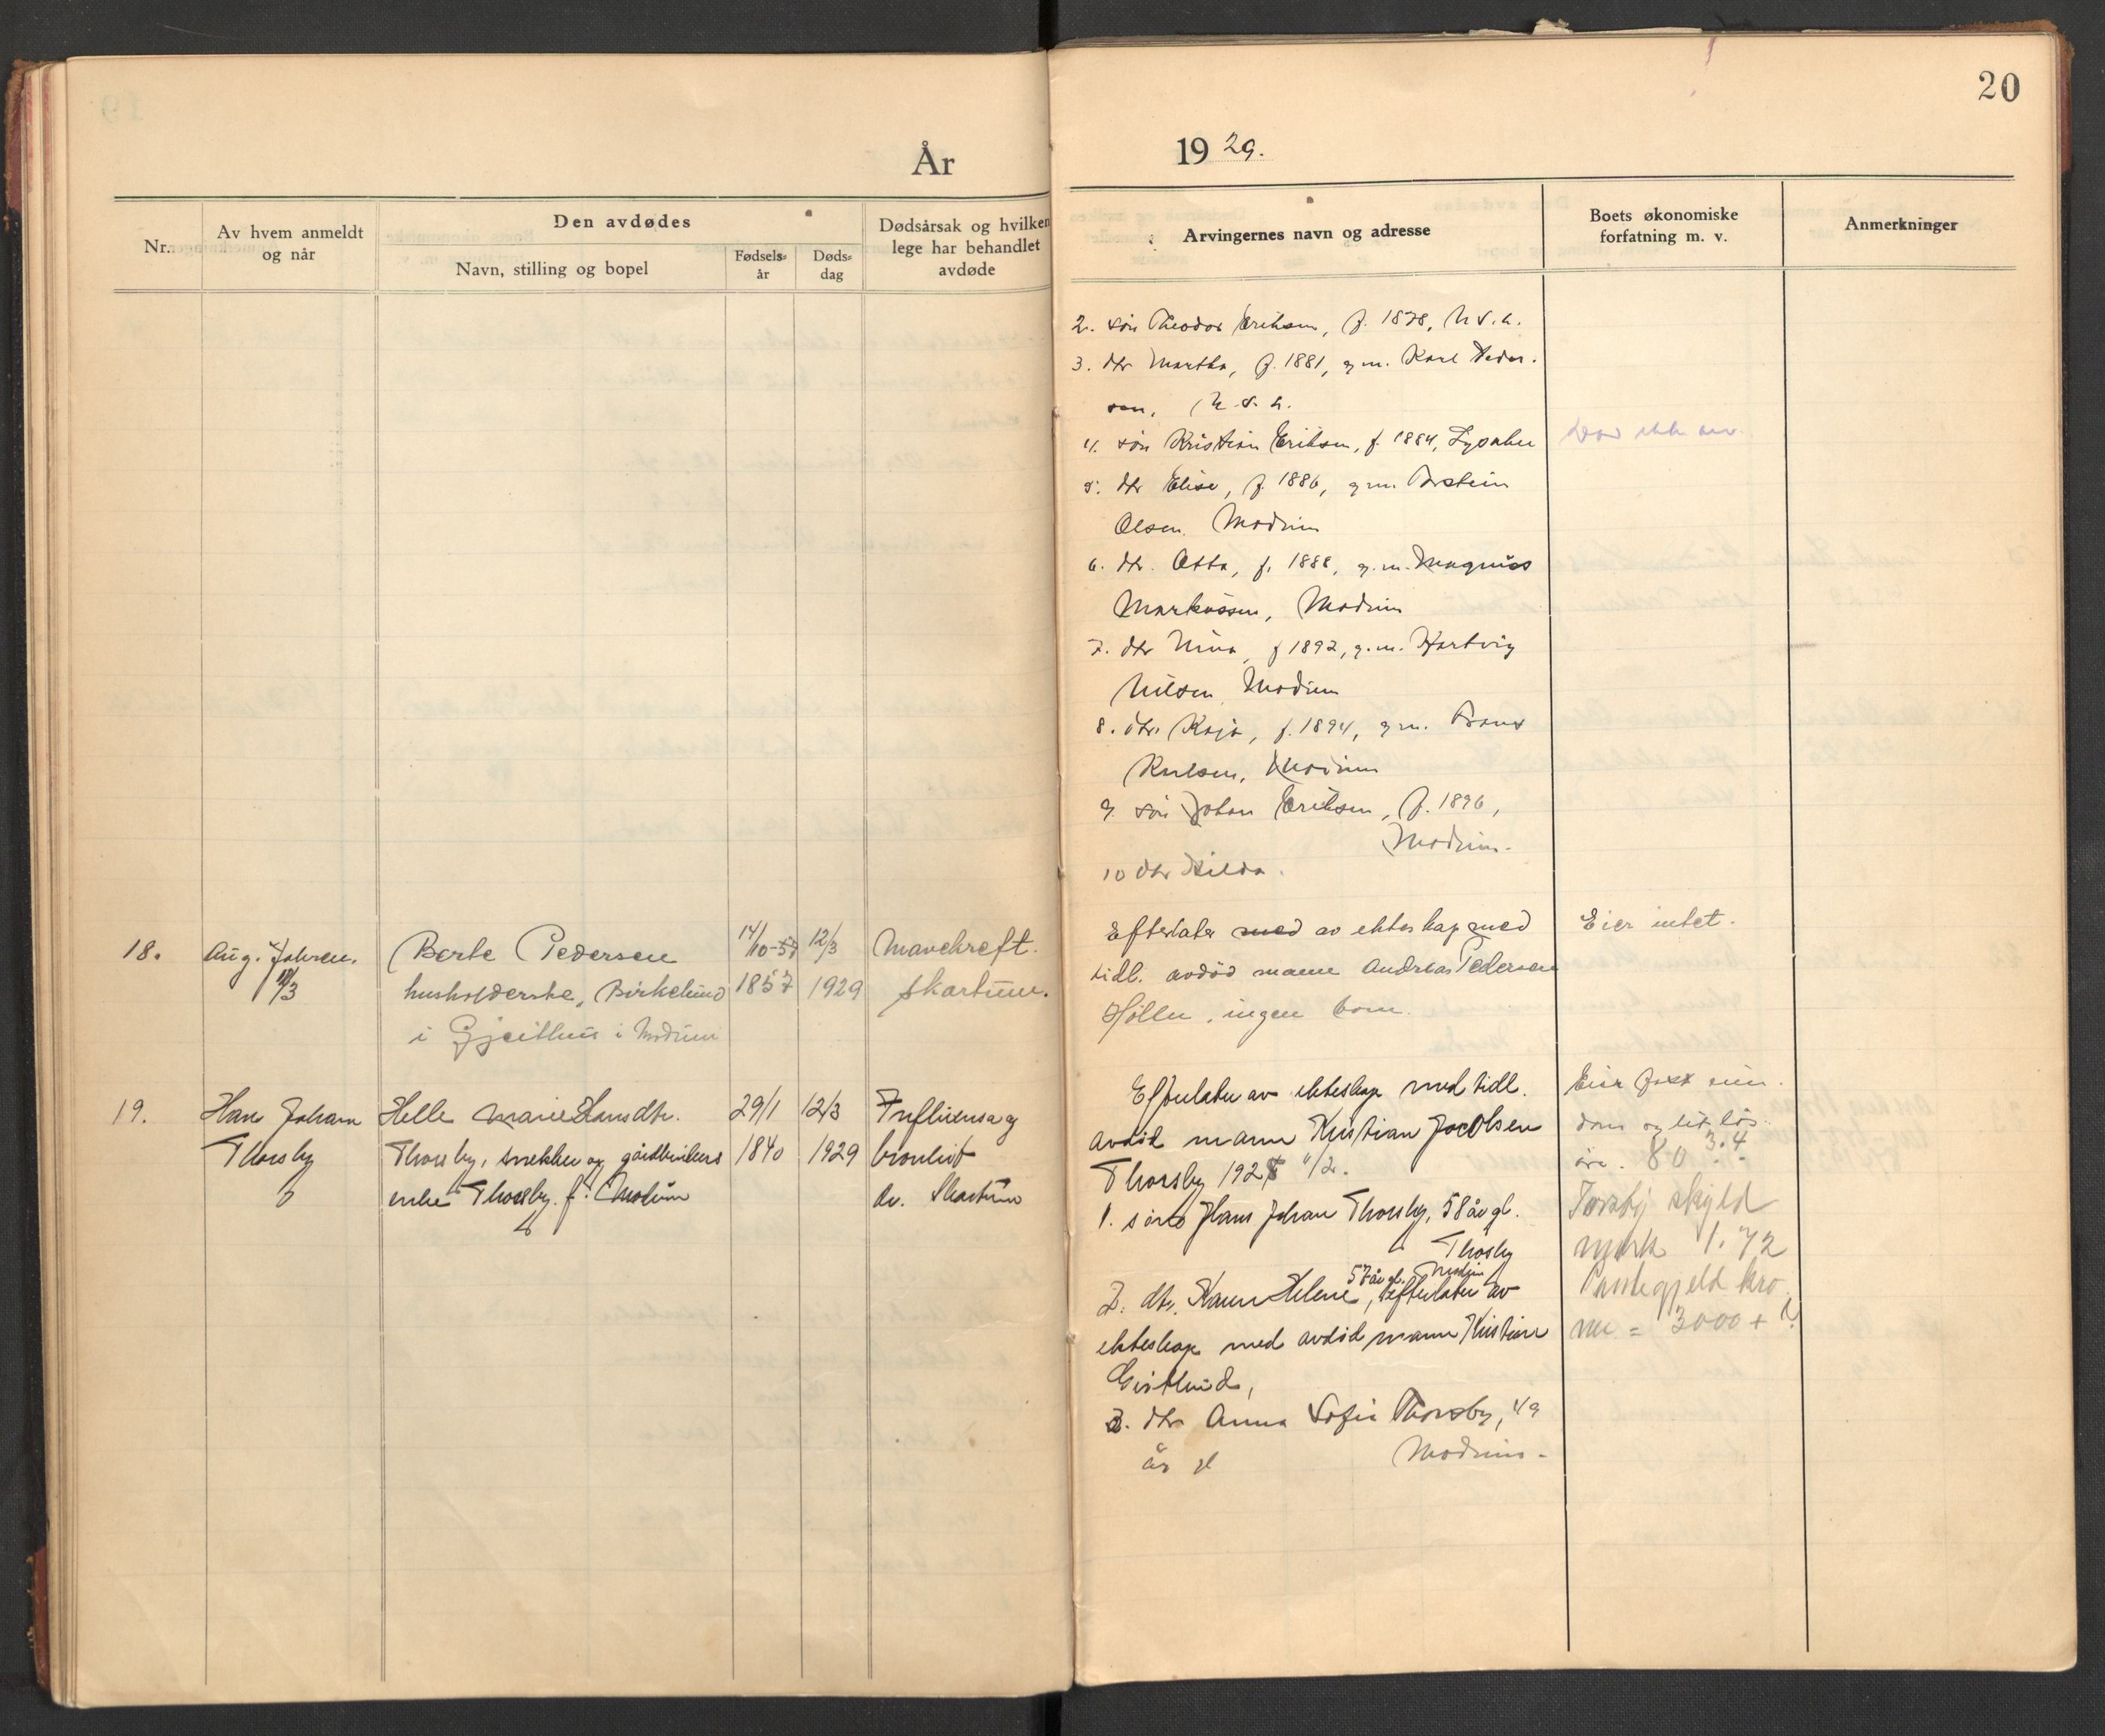 20
År
19 29.
Nr.
Av hvem anmeldt
og når
Den avdødes
Navn, stilling og bopel
Fødsels-
år
Døds-
dag
Dødsårsak og hvilken
lege har behandlet
avdøde
Arvingernes navn og adresse
Boets økonomiske
forfatning m. v.
Anmerkninger
2. søn Theodor Eriksen, f. 1878,
3. dtr Martha, f. 1881, g.m. Karl Peder-
sen,
4. søn Kristian Eriksen, f. 1884, Lysaker
5. dtr Elise, f. 1886, g.m. Torstein
Olsen, Modum
6. dtr. Otta, f. 1888, g.m. Magnus
Markussen, Modum
7. dtr Nina, f 1892, g.m. Hartvig
Nilsen, Modum
8. dtr. Kaja, f. 1894, g.m.
Modum
9. søn Johan Eriksen, f. 1896,
Modum.
10 dtr Hilda.
18.
Aug. Johnsen.
/3
Berte Pedersen
husholderske, Birkelund
i Gjeithus i Modum
14/10-57
1857
12/3
1929
Mavekreft.
Skartum.
Efterlater med av ekteskap med
tidl. avdød mann Andreas Pedersen
ingen barn.
Eier intet.
19.
Hans Johan
Thorsby
Helle Marie Hansdtr.
Thorsby, snekker og gårdbrukers
enke Thorsby f. i Modum
29/1
1840
12/3
1929
Influensa og
bronkit
dr. Skartum
Efterlater av ekteskap med tidl.
avdød mann Kristian Jacobsen
Thorsby 192
1. sønn Hans Johan Thorsby, 58 år gl.
Thorsby
57 år gl. Modum
2. dtr. Karen Helene, efterlater av
ekteskap med avdød mann Kristian
3. dtr Anna Sofie Thorsby, 49
år gl Modum.
Eier fast eien-
dom og lit løs-
øre. 80 3.4
Torsby skyld
mark 1.72
Pantegjeld kro
ner = 3000 + ?